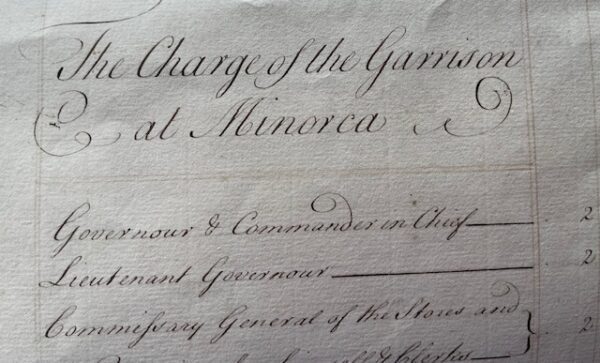 The Charge of the Garrison
at Minorca
Governour & Commander in Chief 2
Lieutenant Governour 2
Commissary General of the Stores and 2
& Clerks